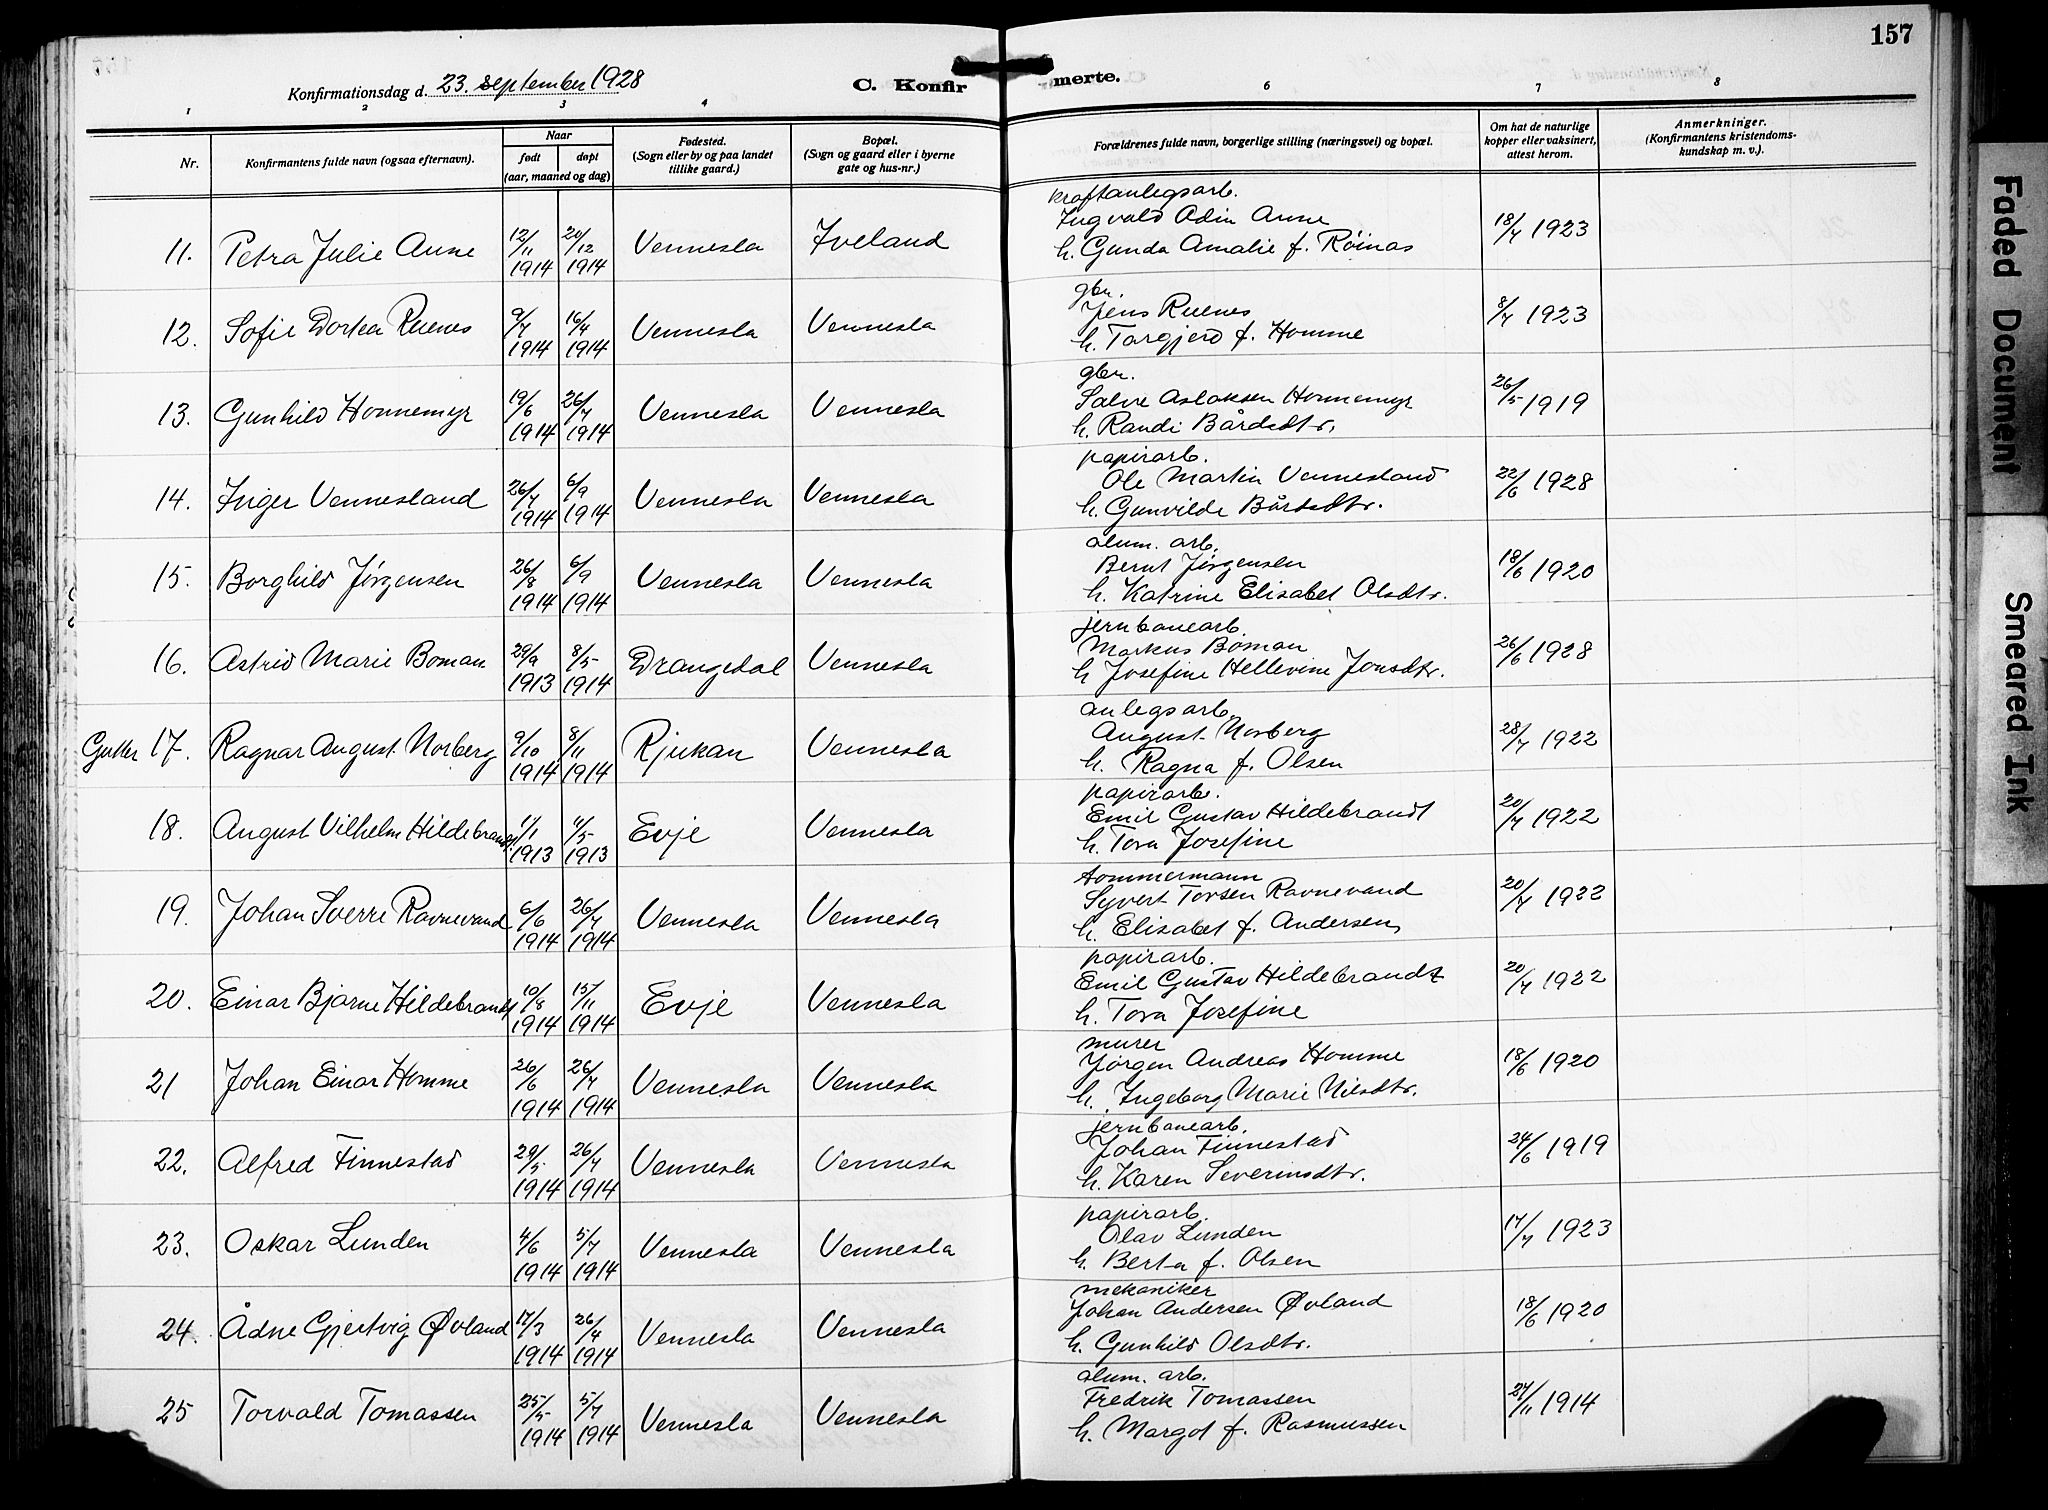 157
Konfirmationsdag d. 23. september 1928
C. Konfirmerte.
1 2 3 4 6 7 8
Nr.
Konfirmantens fulde navn (ogsaa efternavn).
Naar
født
døpt
(aar, maaned og dag)
Fødested.
(Sogn eller by og paa landet
tillike gaard.)
Bopæl.
(Sogn og gaard eller i byerne
gate og hus-nr.)
Forældrenes fulde navn, borgerlige stilling (næringsvei) og bopæl.
Om hat de naturlige
kopper eller vaksinert,
attest herom.
Anmerkninger.
(Konfirmantens kristendoms-
kundskap m. v.).
kraftanlegsarb.
11. Petra Julie Aune 12/11 1914 20/12 1914 Vennesla Iveland Ingvald Odin Aune 18/7 1923
h. Gunda Amalie f. Röinas
gbr.
12. Sofie Dortea Ruenes 9/4 1914 16/4 1914 Vennesla Vennesla Jens Ruenes 8/7 1923
h. Targjerd f. Homme
gbr.
13. Gunhild Honnemyr 19/6 1914 26/7 1914 Vennesla Vennesla Salve Aslaksen Honnemyr 26/5 1919
h. Randi Bårdsdtr.
papirarb.
14. Inger Vennesland 26/7 1914 6/9 1914 Vennesla Vennesla Ole Martin Vennesland 22/6 1928
h. Gunvilde Bårdsdtr.
alum. arb.
15. Borghild Jørgensen 26/8 1914 6/9 1914 Vennesla Vennesla Bernt Jørgensen 18/6 1920
h. Katrine Elisabet Olsdtr.
jernbanearb.
16. Astrid Marie Boman 29/9 1913 8/5 1914 Drangedal Vennesla Markus Boman 26/6 1928
h Josefine Hellevine Jonsdtr.
anlegsarb.
Gutter 17. Ragnar August Norberg 9/10 1914 8/11 1914 Rjukan Vennesla August Norberg 28/7 1922
h. Ragna f. Olsen
papirarb.
18. August Vilhelm Hildebrandt 1/1 1913 11/5 1913 Evje Vennesla Emil Gustav Hildebrandt 20/7 1922
h. Tora Josefine
tommermann
19. Johan Sverre Ravnevand 6/6 1914 26/7 1914 Vennesla Vennesla Syvert Torsen Ravnevand 20/7 1922
h. Elisabet f. Andersen
papirarb.
20. Einar Bjarne Hildebrandt 10/8 1914 15/11 1914 Evje Vennesla Emil Gustav Hildebrandt 20/7 1922
h. Tora Josefine
murer
21 Johan Einar Homme 26/6 1914 26/7 1914 Vennesla Vennesla Jørgen Andreas Homme 18/6 1920
h. Ingeborg Marie Nilsdtr.
jernbanearb.
22. Alfred Finnestad 29/5 1914 26/7 1914 Vennesla Vennesla Johan Finnestad 24/6 1919
h. Karen Severinsdtr.
papirarb.
23. Oskar Lunden 4/6 1914 5/7 1914 Vennesla Vennesla Olav Lunden 17/7 1923
h. Berta f. Olsen
mekaniker
24. Ådne Gjertvig Øvland 17/3 1914 26/4 1914 Vennesla Vennesla Johan Andersen Øvland 18/6 1920
h. Gunhild Olsdtr.
alum. arb.
25 Torvald Tomassen 25/5 1914 5/7 1914 Vennesla Vennesla Fredrik Tomassen 27/11 1914
h. Margot f. Rasmussen
Faded Document
Smeared Ink